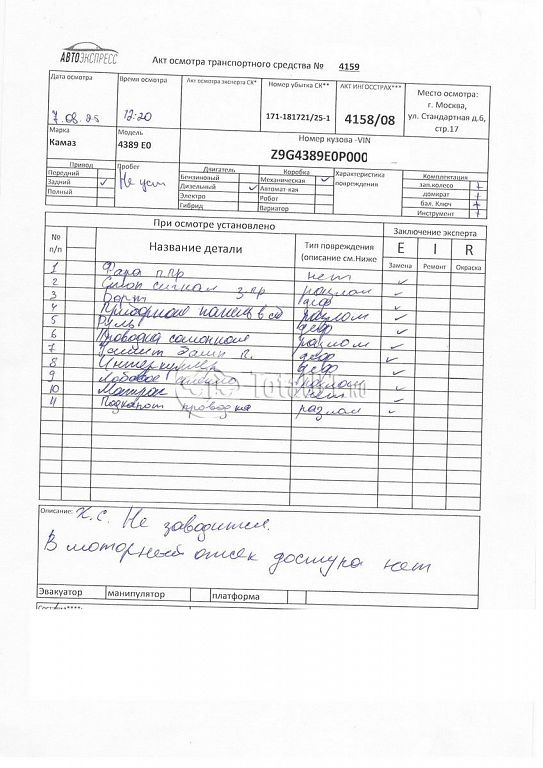 АВТОЭКСПРЕСС
Акт осмотра транспортного средства № 4159
Дата осмотра
7.08.25
Время осмотра
12:20
Акт осмотра эксперта СК*
Номер убытка СК**
171-181721/25-1
АКТ ИНГОССТРАХ***
4158/08
Место осмотра:
г. Москва,
ул. Стандартная д.6,
стр.17
Марка
Камаз
Модель
4389 E0
Номер кузова -VIN
Z9G4389E0P000
Привод
Передний
Задний ✓
Полный
Пробег
Не уст
Двигатель
Бензиновый
Дизельный ✓
Электро
Гибрид
Коробка
Механическая ✓
Автомат-кая
Робот
Вариатор
Характеристика
повреждения
Комплектация
зап.колесо +
домкрат +
бал. Ключ +
Инструмент +
При осмотре установлено
Заключение эксперта
№
п/п
Название детали
Тип повреждения
(описание см.Ниже
E I R
Замена Ремонт Окраска
1 Фара п.пр нет ✓
2 Стоп сигнал з.пр разлом ✓
3 Борт деф ✓
4 Приборная панель в сб разлом ✓
5 Руль деф ✓
6 Проводка салонная разлом ✓
7 деф ✓
8 Интеркуллер деф ✓
9 Лобовое разлом ✓
10 нет ✓
11 Подкапот проводка разлом ✓
Total01.ru
Описание: Х.С. Не заводится.
В моторный отсек доступа нет
Эвакуатор манипулятор платформа